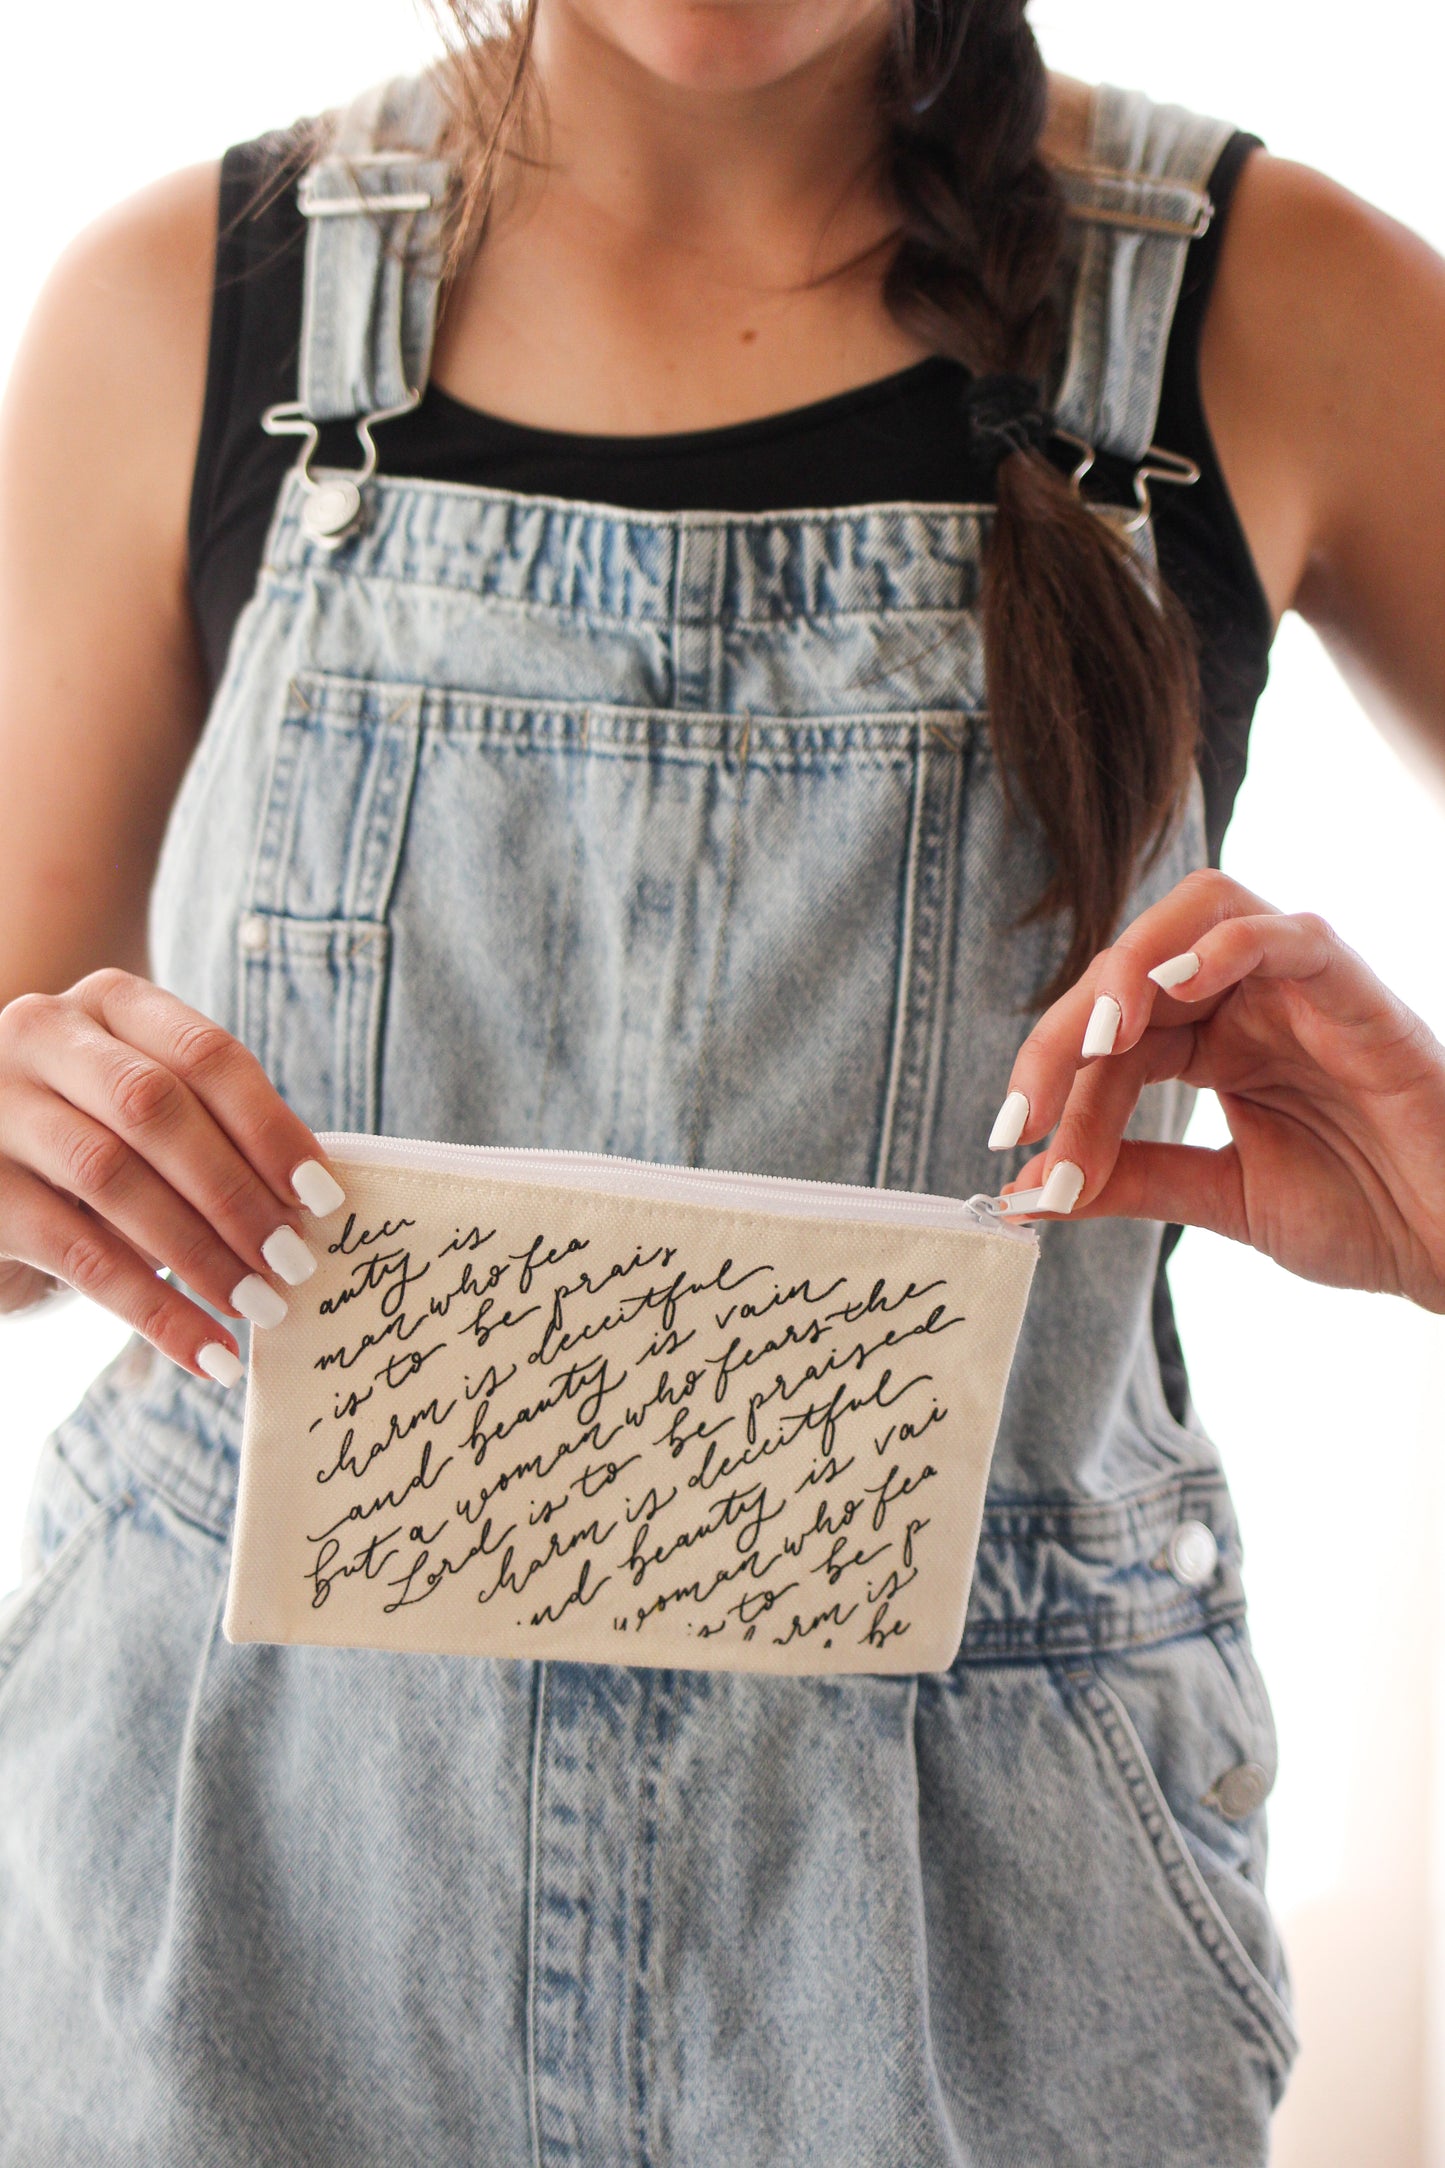 dece
auty is
man who fea
is to be prais
charm is deceitful
and beauty is vain
but a woman who fears the
Lord is to be praised
charm is deceitful
nd beauty is vai
woman who fea
is to be p
rm is
be